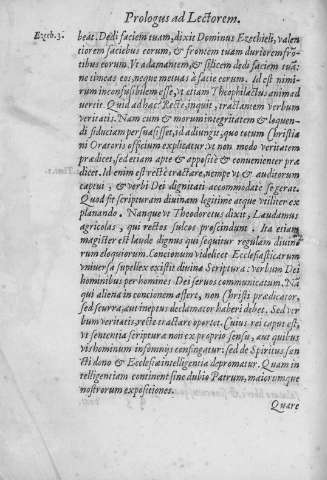 Prologus ad Lectorem.
Ezech. 3.
beat. Dedi faciem tuam, dixit Dominus Ezechieli, valen
tiorem faciebus eorum, & frontem tuam duriorem fron
tibus eorum. Vt adamantem, & silicem dedi faciem tuã:
ne timeas eos, neque metuas à facie eorum. Id est nimi-
rum inconfusibilem esse, vt etiam Theophilactus animad
uertit. Quid ad hæc? Rectè, inquit, tractantem verbum
veritatis. Nam cum & morum integritatem & loquen-
di fiduciam persuasisset, id adiungit, quo totum Christia
ni Oratoris officium explicatur: vt non modo veritatem
prædicet, sed etiam aptè & appositè & conuenienter præ
dicet. Id enim est rectè tractare, nempe vt & auditorum
captui, & verbi Dei dignitati accommodatè sege
Quod fit scripturam diuinam legitimè atque vtiliter ex
planando. Nanque vt Theodoretus dixit, Laudamus
agricolas, qui rectos sulcos proscindunt. Ita etiam
magister est laude dignus qui sequitur regulam diuino
rum eloquiorum. Concionum videlicet Ecclesiasticarum
vniuersa supellex existit diuina Scriptura: verbum Dei
hominibus per homines Dei seruos communicatum. Na
qui aliena in concionem affert, non Christi prædicator,
sed scurra, aut ineptus declamator haberi debet. Sed ver
bum veritatis, rectè tractare oportet. Cuius rei caput est,
vt sententia scripturæ non ex proprio sensu, aut quibus
vis hominum insomnijs confingatur: sed de Spiritus san
cti dono & Ecclesiæ intelligentia depromatur. Quam in
telligentiam continent sine dubio Patrum, maiorumque
nostrorum expositiones.
Quare